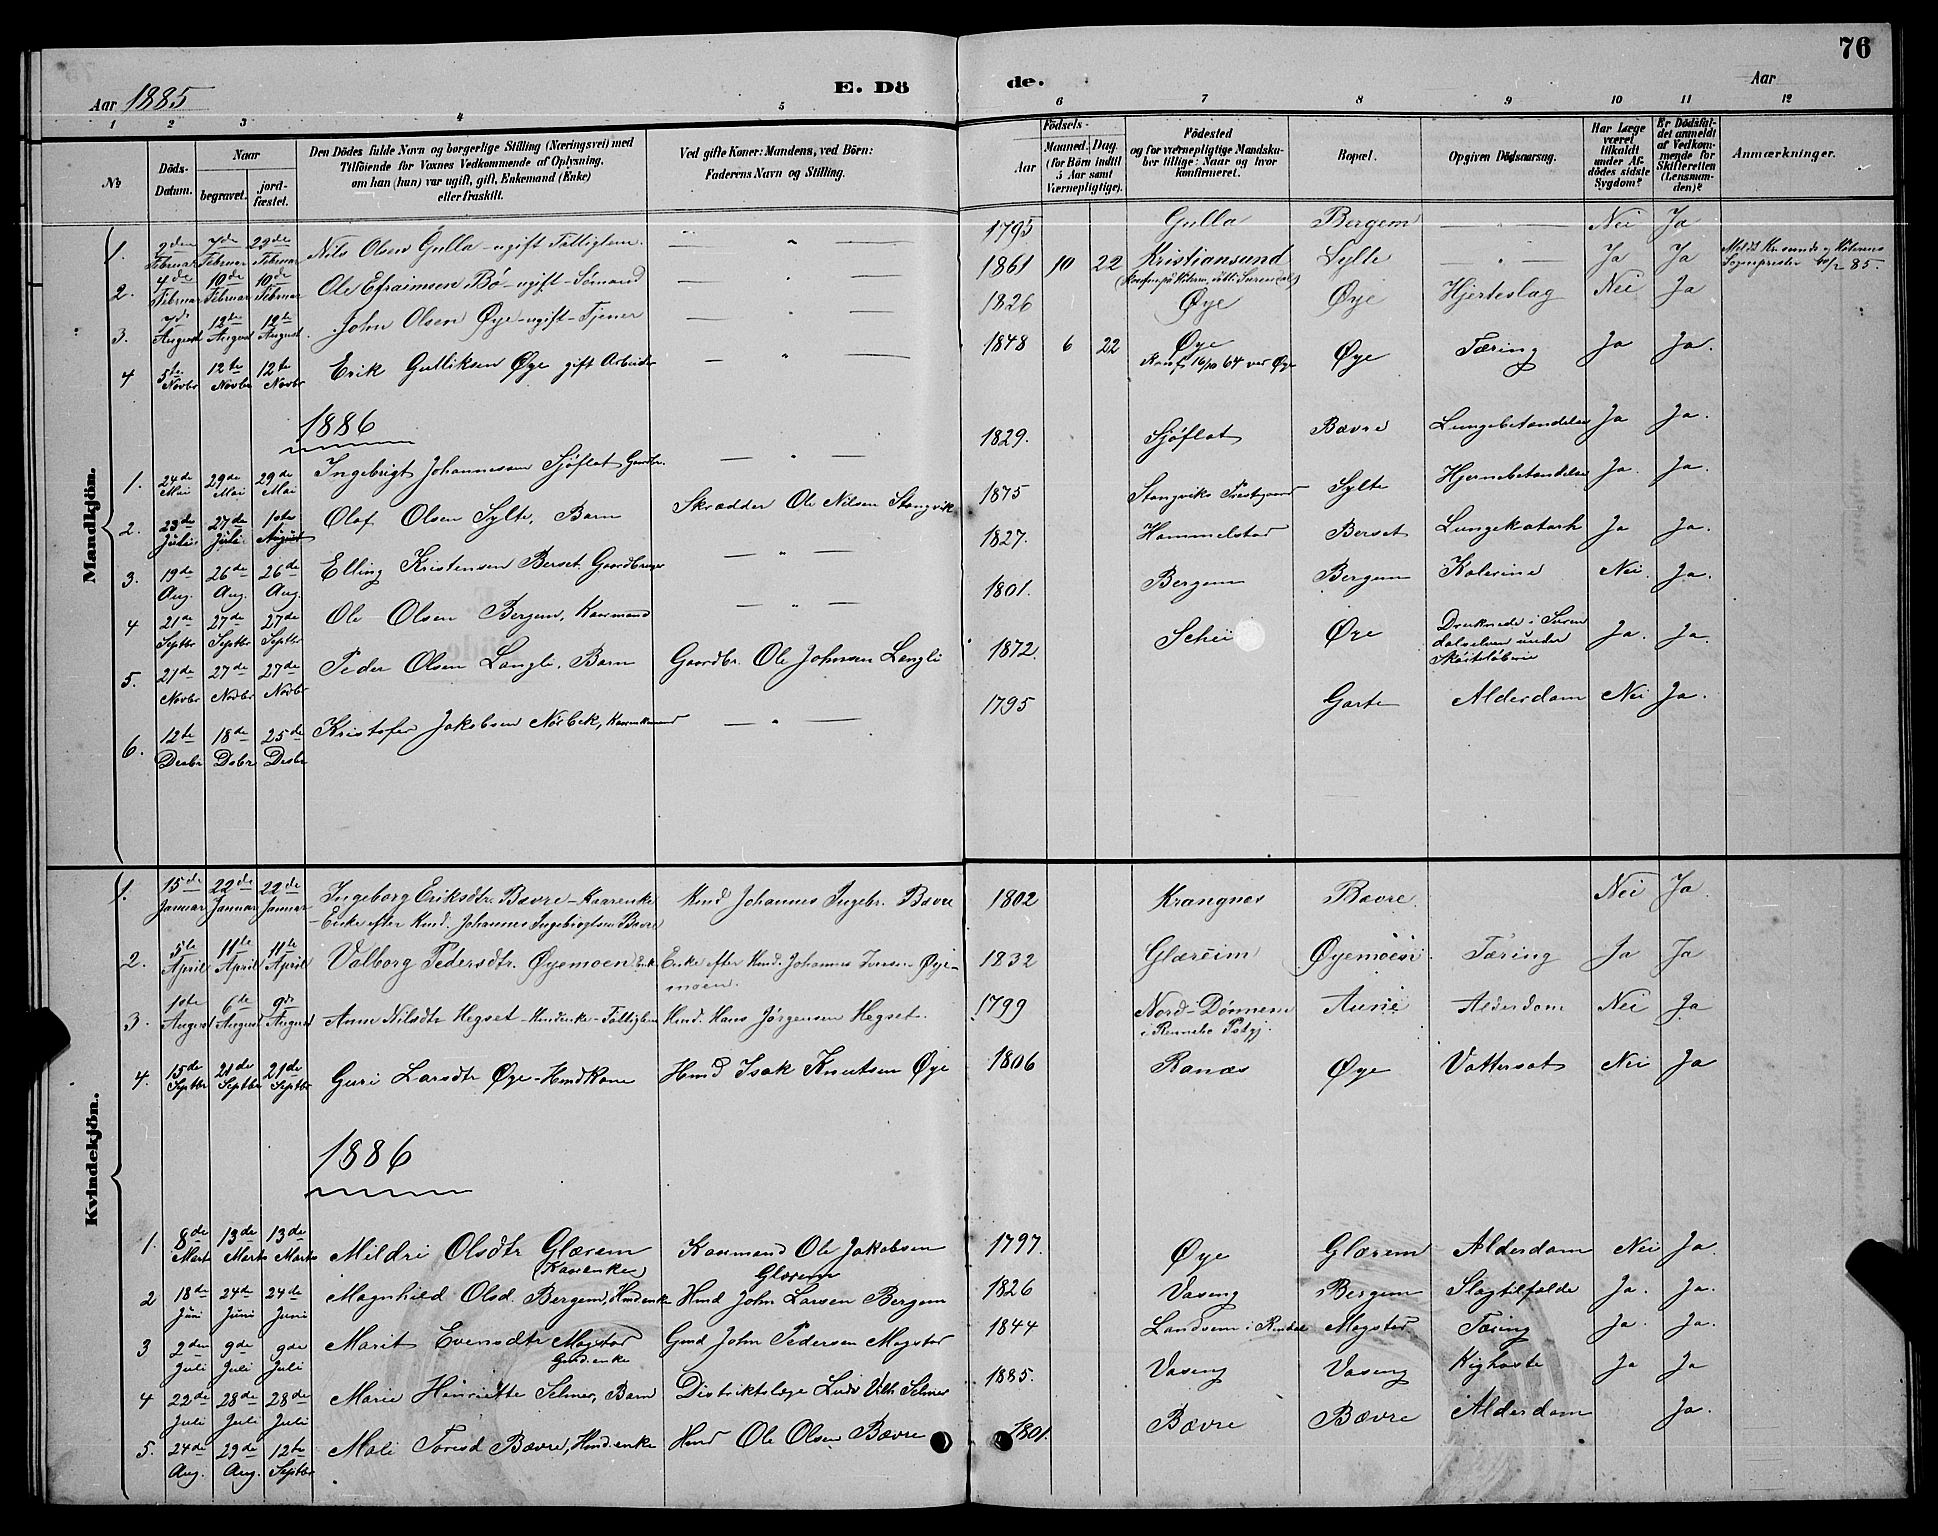 76
Aar 1885
E. Dö de.
Aar
1 2 3 4 5 6 7 8 9 10 11 12
No
Döds-Datum.
Naar
begravet.
jord-fæstet.
Den Dödes fulde Navn og borgerlige Stilling (Næringsvei) med
Tilföiende for Voxnes Vedkommende af Oplysning,
om han (hun) var ugift, gift, Enkemand (Enke)
eller fraskilt.
Ved gifte Koner: Mandens, ved Börn:
Faderens Navn og Stilling.
Födsels-
Aar
Maaned. Dag.
(for Börn indtil
5 Aar samt
Værnepligtige).
Födested
og for værnepligtige Mandsku-
ber tillige: Naar og hvor
konfirmeret.
Bopæl.
Opgiven Dödsaarsag.
Har Læge
været
tilkaldt
under Af-
dödes sidste
Sygdom?
Er Dödsfal-
det anmeldt
af Vedkom-
mende for
Skifteretten
(Lensman-
den)?
Anmærkninger.
Mandkjön.
1. 2den Februar 7de Februar 23de Februar Nils Olsen Gulla - ugift Fattiglem. — " — 1795 Gulla Bergem — " — Nei Ja
2. 4de Februar 10de Februar 10de Februar Ole Efraimsen Bø - ugift - Sømand — " — 1861 10 22 Kristiansund Sylte — " — Ja Ja
Sogneprester 10/2 85.
3. 7de August 12te August 12te August John Olsen Øye - ugift - Tjener — " — 1826 Øye Øye Hjerteslag Nei Ja
4 5te Novbr 12te Novbr 12te Novbr Erik Gulliksen Øye gift Arbeider — " — 1848 6 22 Øye Konf. 16/10 64 ved Øye Øye Tæring Ja Ja.
1886
1. 24de Mai 29de Mai 29de Mai Ingebrigt Johannessen Sjøflot Gaardbr. — " — 1829. Sjøflot Bævre Lungebetændelse Ja Ja.
2. 23de Juli 27de Juli 1ste August Olaf Olsen Sylte, Barn Skrædder Ole Nilsen Stangvik 1875 Stangviks Præstgaard Sylte Hjernebetændelse Ja. Ja.
3. 19de Aug. 26de Aug. 26de Aug. Elling Kristensen Berset Gaardbruger — " — 1827. Hammelstad Berset Lungekatarh Ja Ja.
4 21de Septbr 27de Septbr 27de Septbr Ole Olsen Bergem, Kaarmand — " — 1801. Bergem Bergem Kolerine Nei. Ja.
5. 21de Novbr 27de Novbr 27de Novbr Peder Olsen Langli, Barn Gaardbr. Ole Johnsen Langli 1872. Schei Øye Druknede i Suren
dalselven under
Skøiteløbning Ja. Ja.
6. 12te Decbr 18de Decbr 25de Decbr Kristofer Jakobsen Nörbek, Kaarenkemand — " — 1795 Garte Alderdom Nei Ja.
Kvindekjön.
1. 15de Januar 22de Januar 22de Januar Ingeborg Eriksdtr. Bævre - Kaarenke
- Enke efter Hmd. Johannes Ingebrigtsen Bævre Hmd Johannes Ingebr. Bævre 1802 Krangnæs Bævre. Nei Ja.
2. 5te April 11te April 11te April Valborg Pedersdtr. Øyemoen Enke Enke efter Hmd. Johannes Iversen Øye-
moen. 1832 Glæreim Øyemoen Tæring Ja Ja
3. 1ste August 6te August 9de August Anne Nilsdtr Hegset - Hmdenke - Fattiglem Hmd. Hans Jørgensen Hegset. 1799 Nord-Dønnem
i Rennebo Pstgj. Aune Alderdom Nei Ja
4. 15de Septbr 21de Septbr 21de Septbr Guri Larsdtr Øye - Hmdkone Hmd Isak Knutsen Øye 1806 Ranæs Øye Vattersot Nei Ja
1886
1. 8de Marts 13de Marts 13de Marts Mildri Olsdtr Glærem
(Kaarenke) Kaarmand Ole Jakobsen
Glærem 1797. Øye Glærem Alderdom Nei Ja.
2 18de Juni 24de Juni 24de Juni Magnhild Olsd. Bergem, Hmdenke Hmd John Larsen Bergem 1826 Vaseng Bergem Slagtilfælde Ja. Ja.
3 2den Juli 9de Juli 9de Juli Marit Evensdtr Mogstad
Gmd.enke Gmd John Pedersen Mogstad 1844 Landsem i Rindal Mogstad Tæring Ja. Ja.
4 22de Juli 28de Juli 28de Juli Marie Henriette Selmer, Barn Distriktslæge Ludv. Vilh. Selmer 1885. Vaseng Vaseng Kighoste Ja Ja
5. 24de Aug. 29de Aug. 12te Septbr Mali Toresd Bævre, Hmd.enke Hmd Ole Olsen Bævre 1801. Bævre Bævre Alderdom Ja.